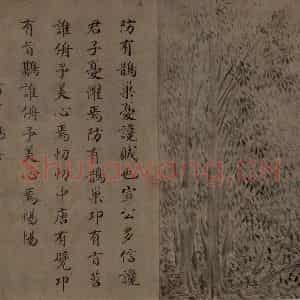 防有鵲巢憂讒賊也宣公多信讒
君子憂懼焉防有鵲巢邛有旨苕
誰侜予美心焉忉忉中唐有甓邛
有旨鷊誰侜予美心焉惕惕
shufawang.CN